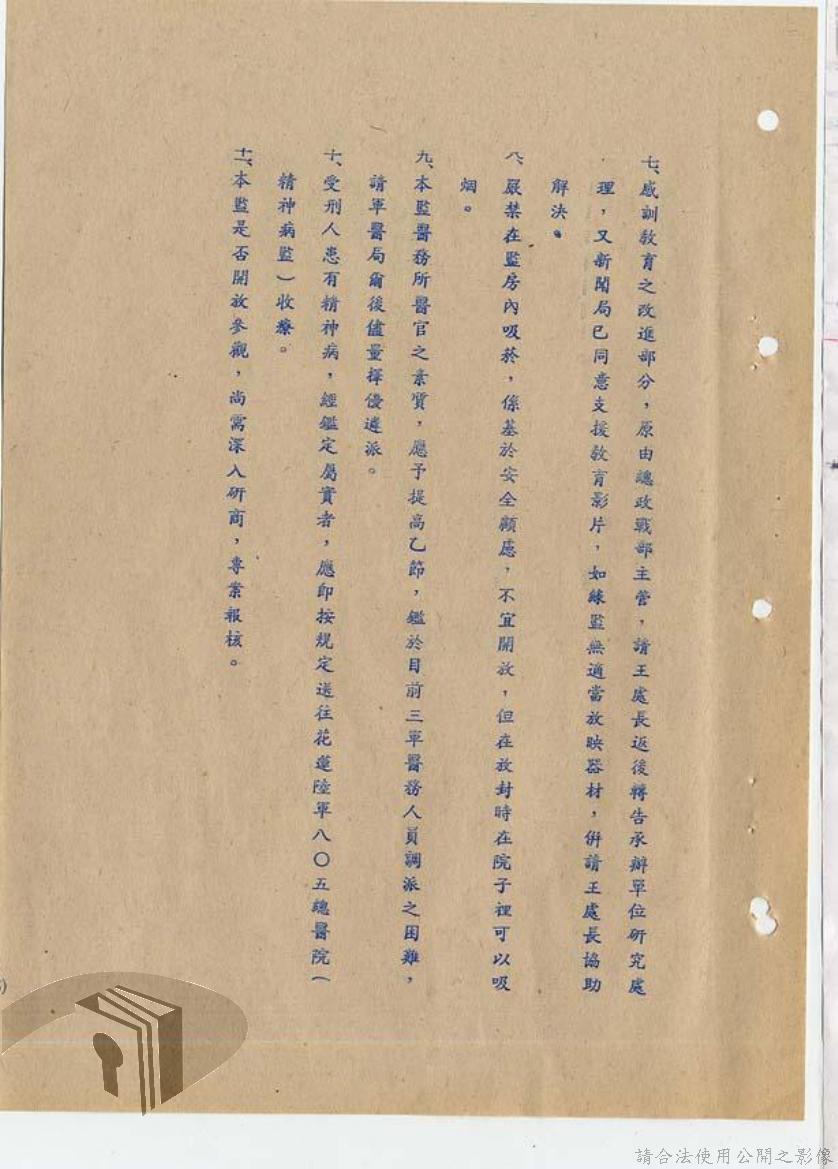 七、感訓教育之改進部分，原由總政戰部主管，請王處長返後轉告承辦單位研究處
理，又新聞局已同意支援教育影片，如綠監無適當放映器材，併請王處長協助
解決。
八、嚴禁在監房內吸菸，係基於安全顧慮，不宜開放，但在放封時在院子裡可以吸
烟。
九、本監醫務所醫官之素質，應予提高乙節，鑑於目前三軍醫務人員調派之困難，
請軍醫局爾後儘量擇優遴派。
十、受刑人患有精神病，經鑑定屬實者，應即按規定送往花蓮陸軍八〇五總醫院（
精神病監）收療。
十一、本監是否開放參觀，尚需深入研商，專案報核。
請合法使用公開之影像